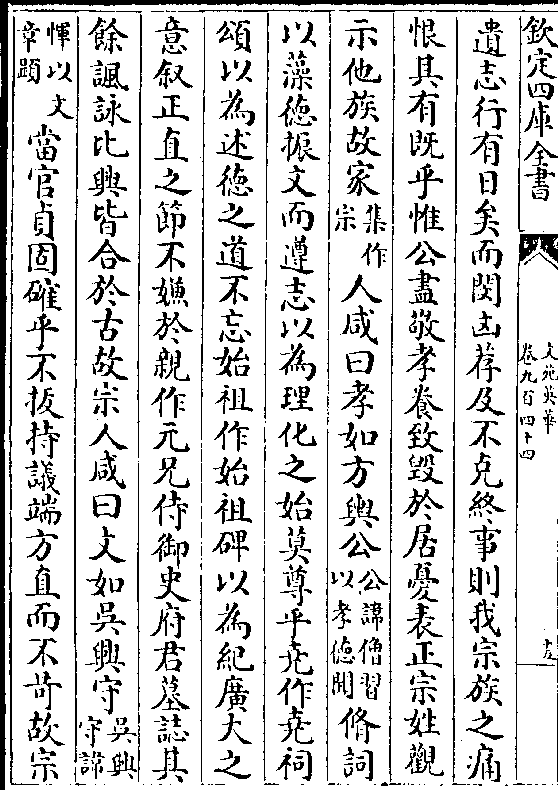 欽定四庫全書
文苑英華
卷九百四十四
遺志行有日矣而閔凶荐及不克終事則我宗族之痛
恨其有既乎惟公盡敬孝養致毁於居憂表正宗姓觀
示他族故家集作宗人咸曰孝如方輿公公諱僧習以孝德聞脩詞
以藻德振文而遵志以為理化之始莫尊乎尭作尭祠
頌以為述德之道不忘始祖作始祖碑以為紀廣大之
意叙正直之節不嫌於親作元兄侍御史府君墓誌其
餘諷詠比興皆合於古故宗人咸曰文如吳興守吳興守諱
惲以文章顯當官貞固確乎不拔持議端方直而不苛故宗